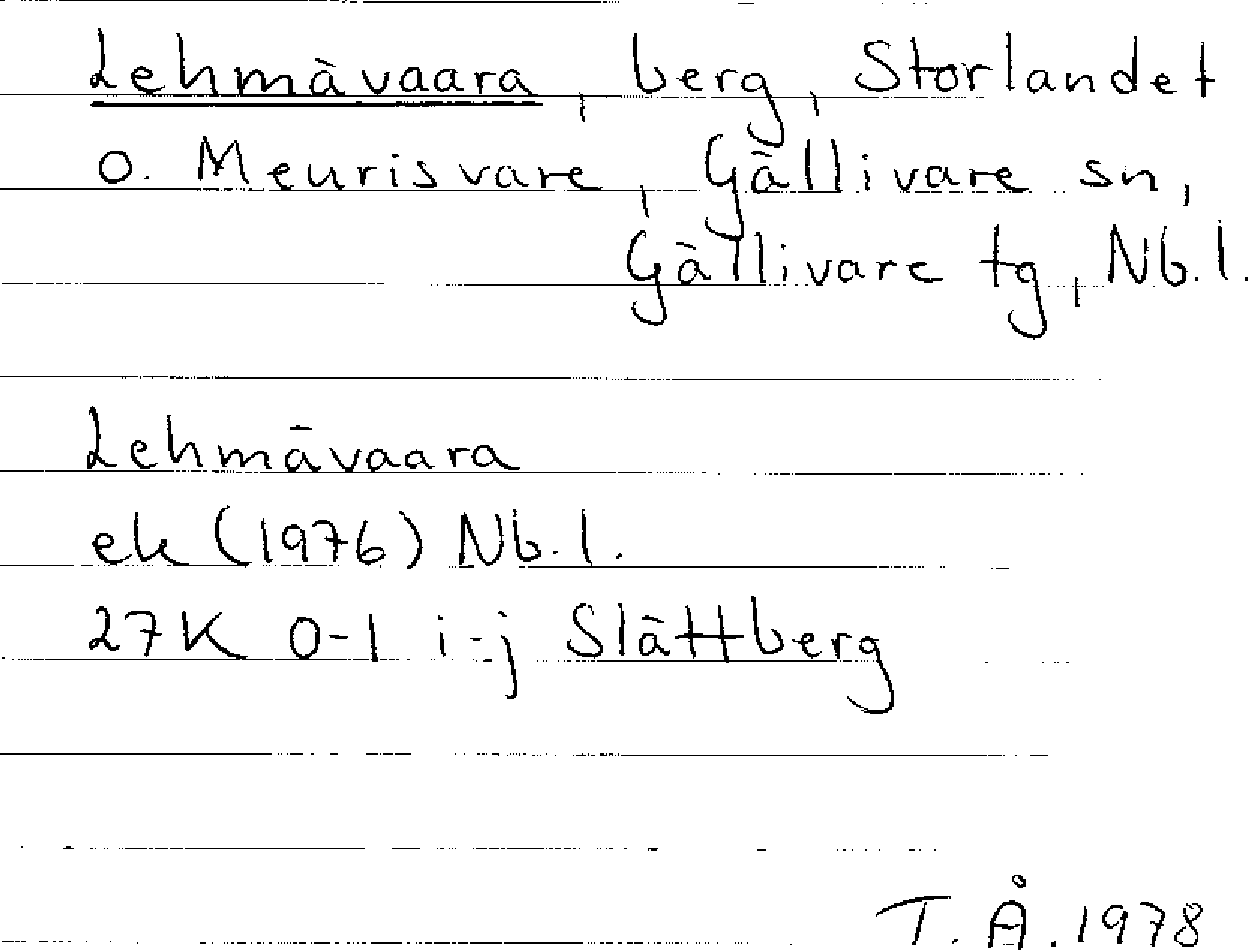 Lehmävaara, berg, Storlandet
o. Meurisvare, Gällivare sn,
Gällivare tg, Nb.l.
Lehmävaara
ek (1976) Nb.l.
27K 0-1 i-j Slättberg
T.Å.1978